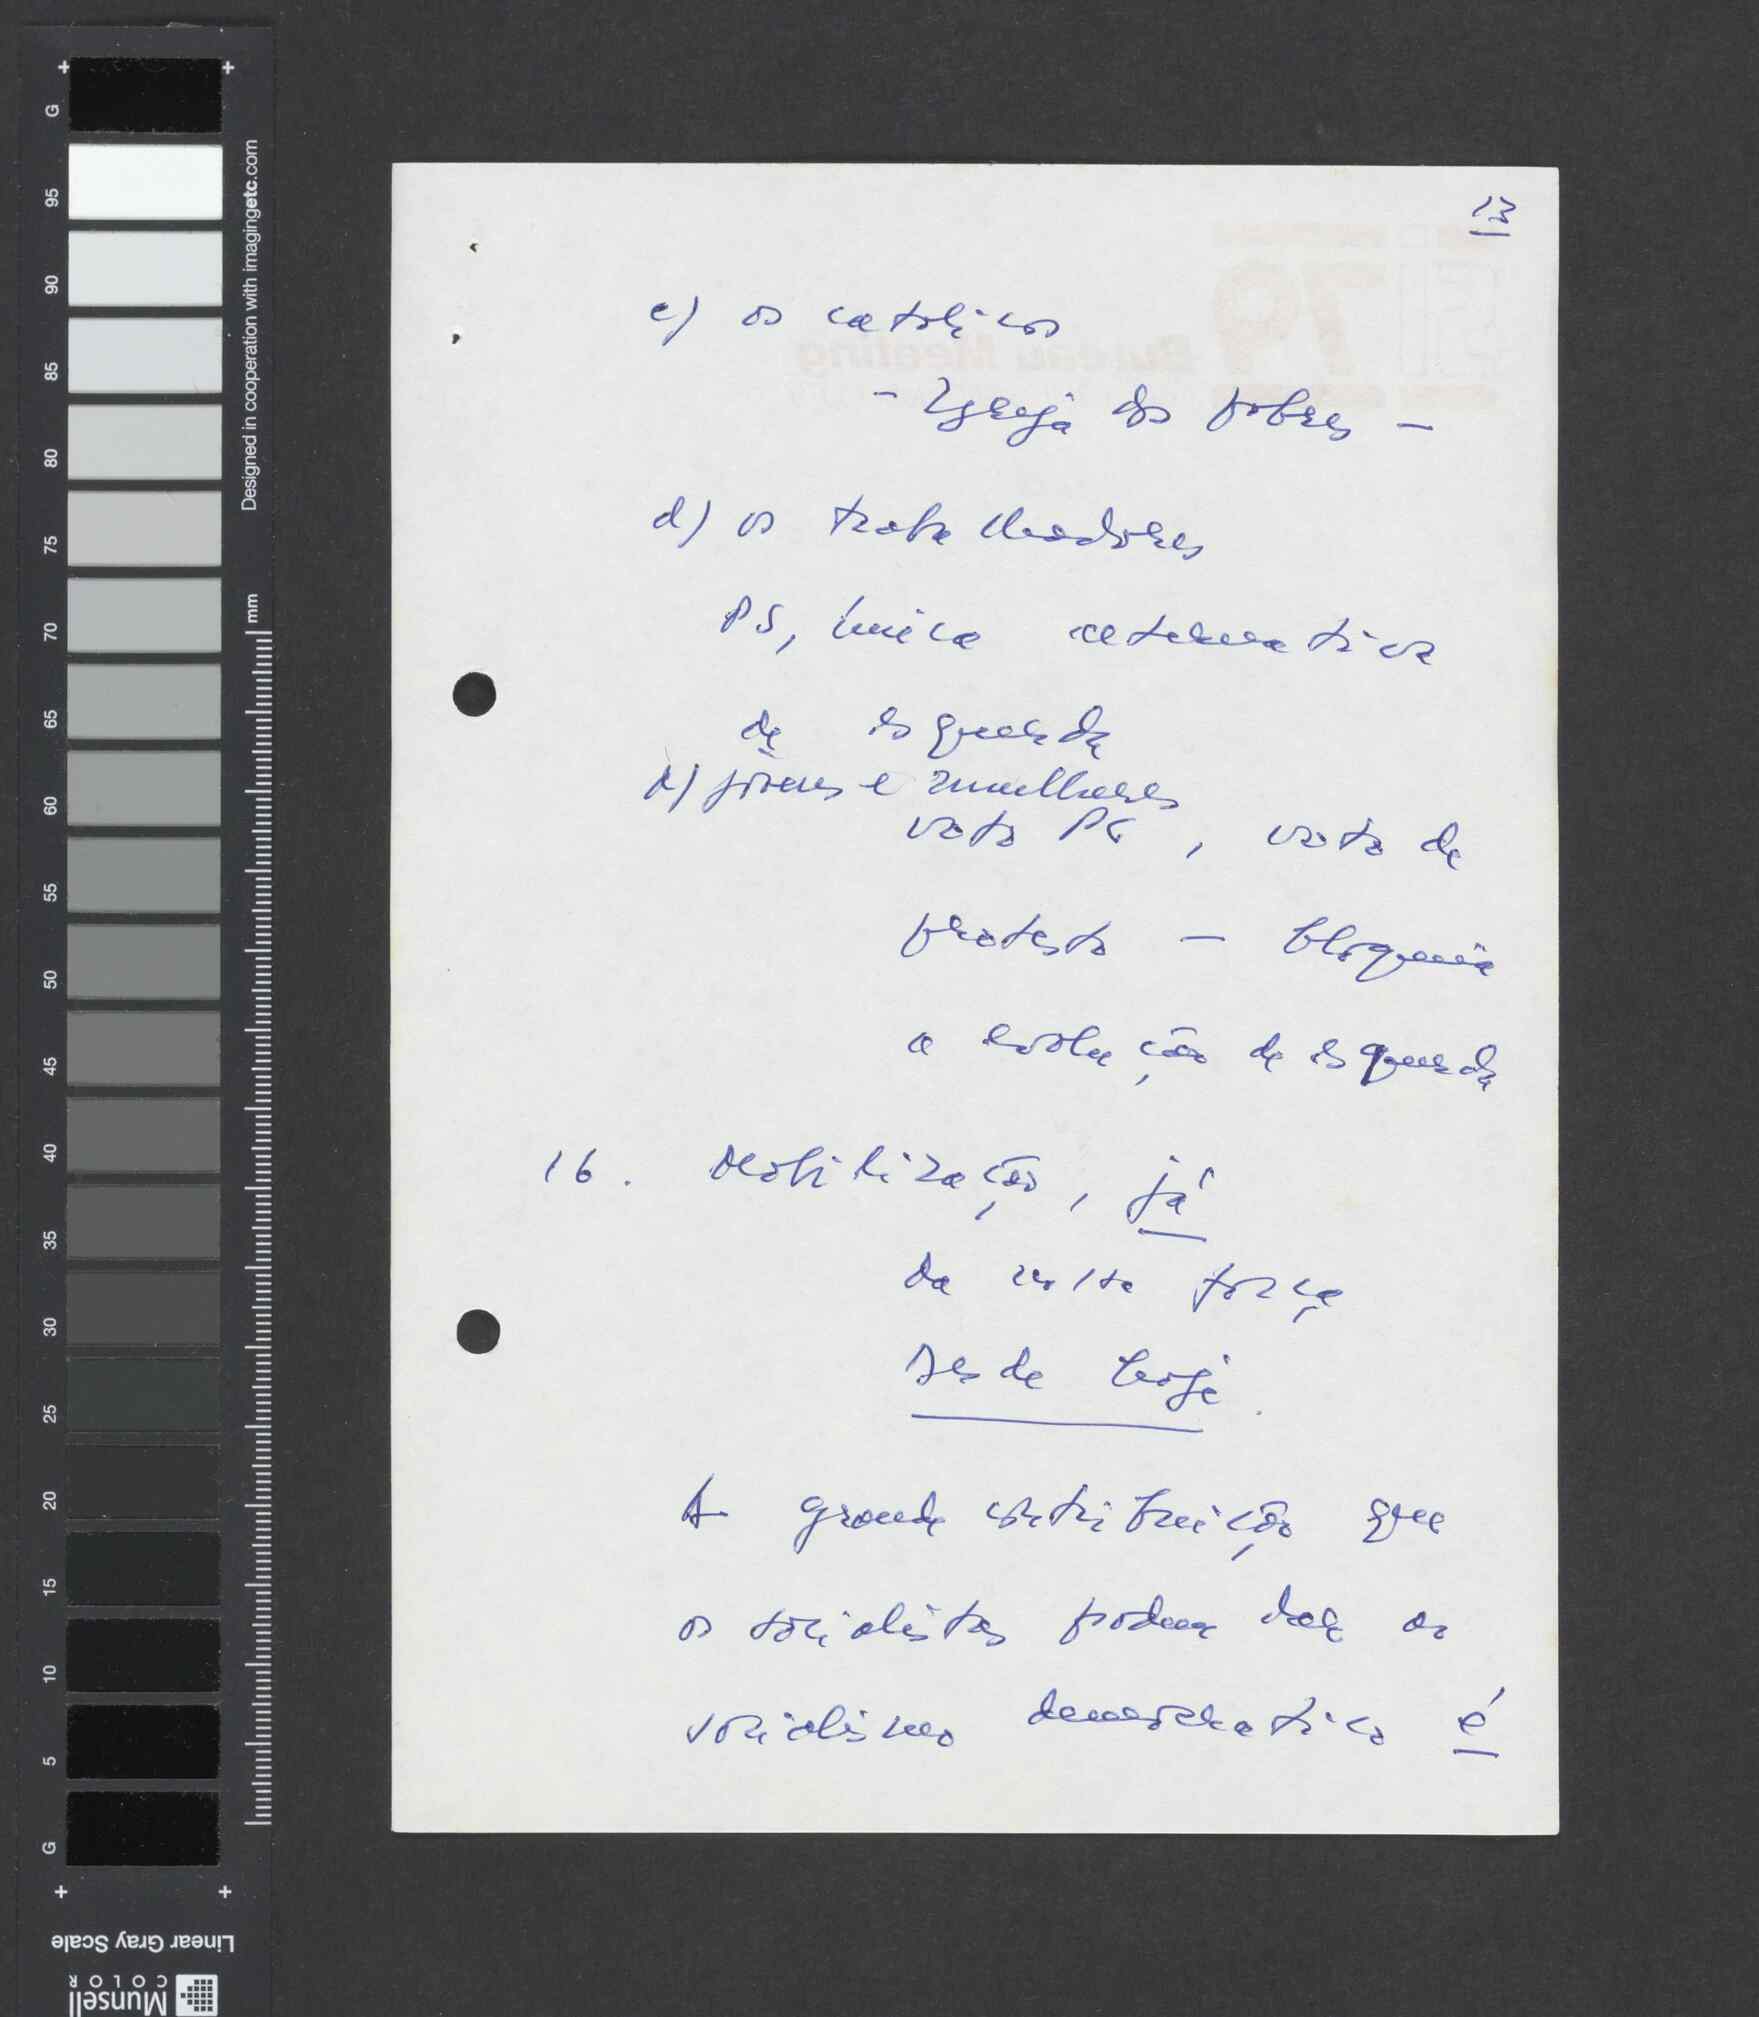 13
c) os católicos
- Igreja dos pobres -
d) os trabalhadores
PS, única alternativa
de esquerda
e) jovens e mulheres
voto PC, voto de
protesto - bloqueia
a evolução de esquerda
16. Mobilização, já
da nossa força
desde hoje.
A grande contribuição que
os socialistas podem dar ao
socialismo democratico é
G
95
90
85
80
75
70
65
60
55
50
45
40
35
30
25
20
15
10
5
G
Designed in cooperation with imagingetc.com
mm
Linear Gray Scale
Munsell
COLOR
79
Bureau Meeting